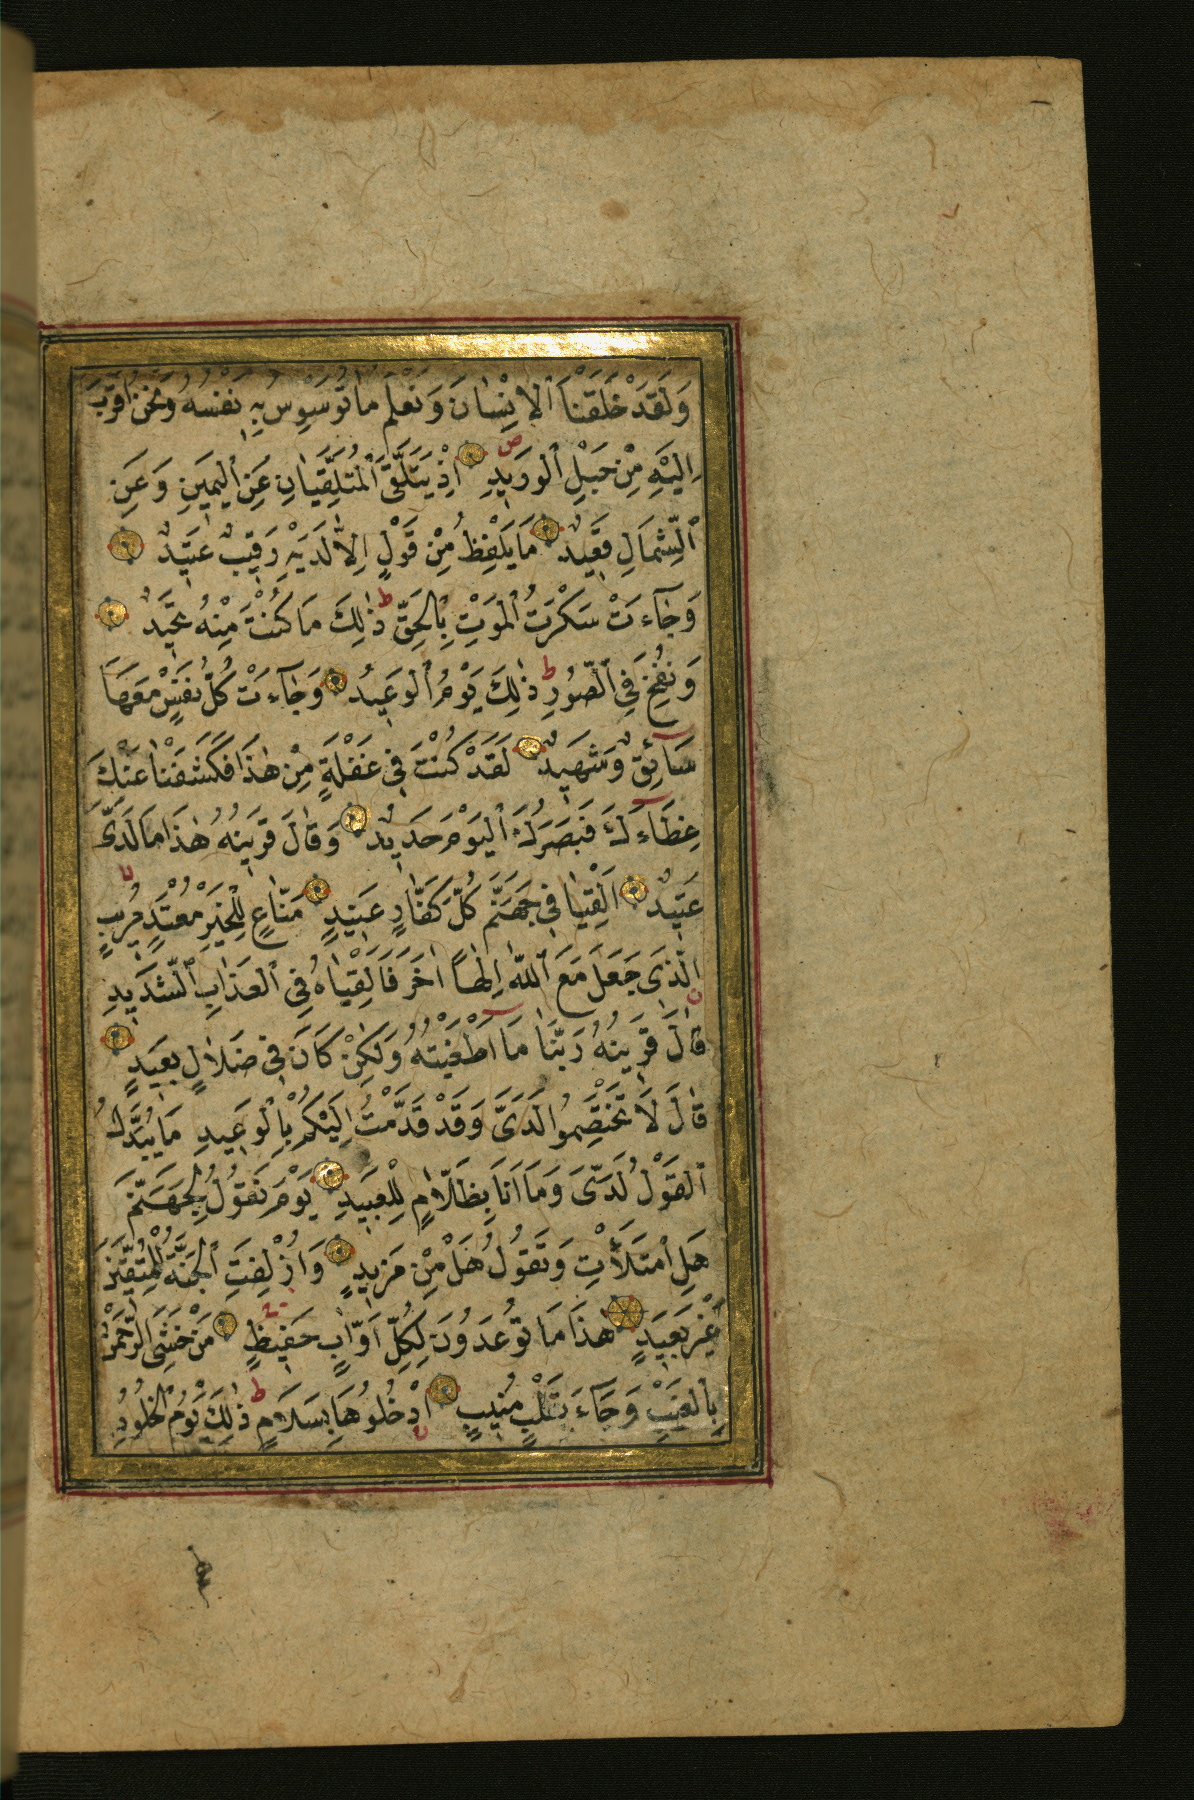 وَلَقَدْ خَلَقْنَا ٱلْاِنْسَانَ وَنَعْلَمُ مَا تُوَسْوِسُ بِهِ نَفْسُهُ وَنَحْنُ اَقْرَبُ
اِلَيْهِ مِنْ حَبْلِ ٱلْوَرِيدِ ص اِذْ يَتَلَقَّى ٱلْمُتَلَقِّيَانِ عَنِ ٱلْيَمِينِ وَعَنِ
ٱلشِّمَالِ قَعِيدٌ مَا يَلْفِظُ مِنْ قَوْلٍ اِلَّا لَدَيْهِ رَقِيبٌ عَتِيدٌ
وَجَآءَتْ سَكْرَتُ ٱلْمَوْتِ بِالْحَقِّ ط ذٰلِكَ مَا كُنْتَ مِنْهُ تَحِيدُ
وَنُفِخَ فِي ٱلصُّورِ ط ذٰلِكَ يَوْمُ ٱلْوَعِيدِ وَجَآءَتْ كُلُّ نَفْسٍ مَعَهَا
سَآئِقٌ وَشَهِيدٌ لَقَدْ كُنْتَ فِي غَفْلَةٍ مِنْ هٰذَا فَكَشَفْنَا عَنْكَ
غِطَآءَكَ فَبَصَرُكَ ٱلْيَوْمَ حَدِيدٌ وَقَالَ قَرِينُهُ هٰذَا مَا لَدَيَّ
عَتِيدٌ اَلْقِيَا فِي جَهَنَّمَ كُلَّ كَفَّارٍ عَنِيدٍ مَنَّاعٍ لِلْخَيْرِ مُعْتَدٍ مُرِيبٍ
الَّذِي جَعَلَ مَعَ ٱللّٰهِ اِلٰهًا اٰخَرَ فَاَلْقِيَاهُ فِي ٱلْعَذَابِ ٱلشَّدِيدِ
قَالَ قَرِينُهُ رَبَّنَا مَآ اَطْغَيْتُهُ وَلٰكِنْ كَانَ فِي ضَلَالٍ بَعِيدٍ
قَالَ لَا تَخْتَصِمُوا لَدَيَّ وَقَدْ قَدَّمْتُ اِلَيْكُمْ بِالْوَعِيدِ مَا يُبَدَّلُ
ٱلْقَوْلُ لَدَيَّ وَمَا اَنَا بِظَلَّامٍ لِلْعَبِيدِ يَوْمَ نَقُولُ لِجَهَنَّمَ
هَلِ امْتَلَأْتِ وَتَقُولُ هَلْ مِنْ مَزِيدٍ وَاُزْلِفَتِ ٱلْجَنَّةُ لِلْمُتَّقِينَ
غَيْرَ بَعِيدٍ هٰذَا مَا تُوعَدُونَ لِكُلِّ اَوَّابٍ حَفِيظٍ مَنْ خَشِيَ الرَّحْمٰنَ
بِالْغَيْبِ وَجَآءَ بِقَلْبٍ مُنِيبٍ ادْخُلُوهَا بِسَلَامٍ ط ذٰلِكَ يَوْمُ الْخُلُودِ